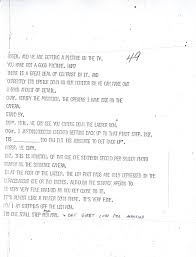 ROGER, AND WE ARE GETTING A PICTURE ON THE TV.
YOU HAVE GOT A GOOD PICTURE, HUH?
THERE IS A GREAT DEAL OF CONTRAST IN IT, AND
CURRENTLY ITS UPSIDE DOWN ON OUR MONITOR BUT WE CAN MAKE OUT
A GOOD AMOUNT OF DETAIL.
OKAY, VERIFY THE POSITION, THE OPENING I HAVE GOT ON THE
CAMERA.
STAND BY.
OKAY, NEIL WE CAN SEE YOU COMING DOWN THE LADDER NOW.
OKAY. I JUST GETTING BACK UP TO THAT FIRST STEP,
TO GET BACK UP.
ROGER, WE COPY.
THIS IS
ON THE CAMERA.
AT THE FOOT OF THE LADDER. THE LEM FOOT PADS ARE ONLY DEPRESSED IN THE
ALTHOUGH THE SURFACE APPEARS TO
BE VERY VERY FINE GRAINED AS YOU GET CLOSE TO IT.
IT'S ALMOST LIKE A POWDER DOWN THERE. ITS VERY FINE.
STEP OFF THE LEM NOW.
THAT'S ONE SMALL STEP FOR MAN
49
ONE GIANT LEAP FOR MANKIND